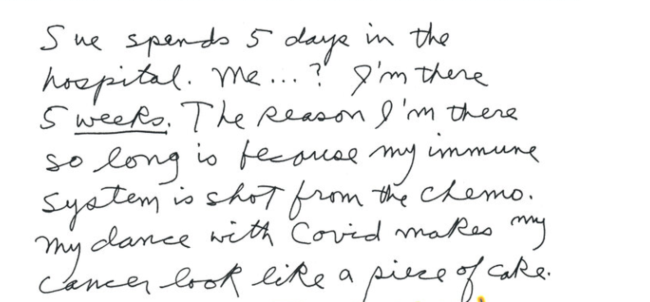 Sue spends 5 days in the
hospital. Me...? I'm there
5 weeks. The reason I'm there
so long is because my immune
system is shot from the chemo.
My dance with Covid makes my
cancer look like a piece of cake.